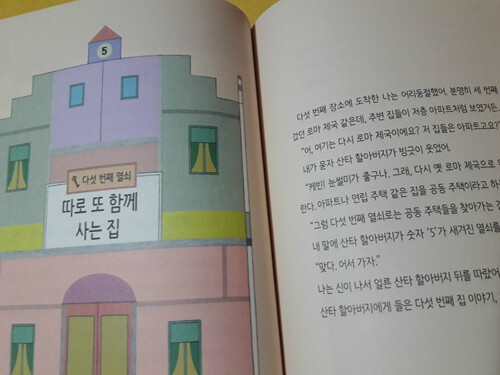 5
다섯 번째 열쇠
따로 또 함께
사는 집
다섯 번째 장소에 도착한 나는 어리둥절했어. 분명히 세 번째
갔던 로마 제국 같은데, 주변 집들이 저층 아파트처럼 보였거든.
“어, 여기는 다시 로마 제국이에요? 저 집들은 아파트고요?”
내가 묻자 산타 할아버지가 빙긋이 웃었어.
“케빈! 눈썰미가 좋구나. 그래, 다시 옛 로마 제국으로
란다. 아파트나 연립 주택 같은 집을 공동 주택이라고 하
“그럼 다섯 번째 열쇠로는 공동 주택들을 찾아가는
내 말에 산타 할아버지가 숫자 ‘5’가 새겨진 열쇠를
“맞다. 어서 가자.”
나는 신이 나서 얼른 산타 할아버지 뒤를 따랐어
산타 할아버지에게 들은 다섯 번째 집 이야기,